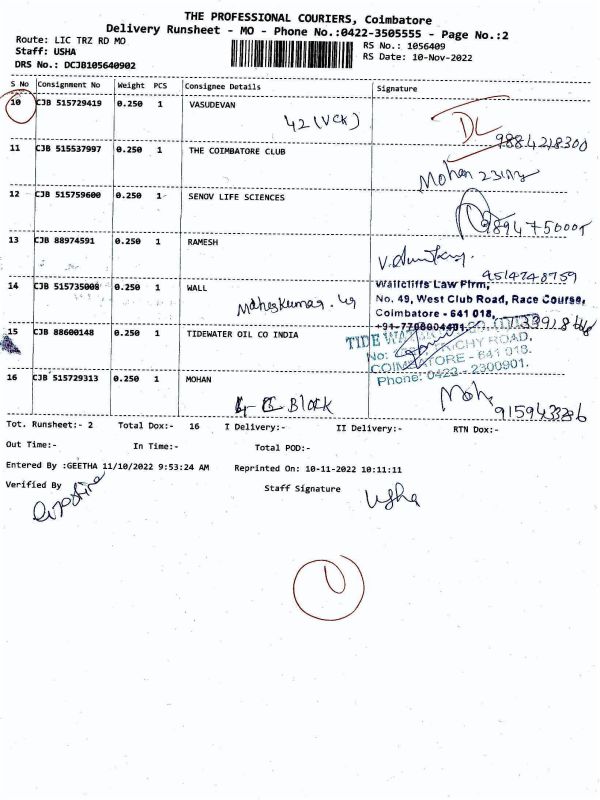 THE PROFESSIONAL COURIERS, Coimbatore
Delivery Runsheet - MO - Phone No.:0422-3505555 - Page No.:2
Route: LIC TRZ RD MO
Staff: USHA
DRS No.: DCJB105640902
RS No.: 1056409
RS Date: 10-Nov-2022
S No Consignment No Weight PCS Consignee Details Signature
10 CJB 515729419 0.250 1 VASUDEVAN DL
42 (VCK) 9884218300
11 CJB 515537997 0.250 1 THE COIMBATORE CLUB
Mohan
12 CJB 515759600 0.250 1 SENOV LIFE SCIENCES
13 CJB 88974591 0.250 1 RAMESH
9514748759
14 CJB 515735008 0.250 1 WALL Wallcliffs Law Firm,
Maheskumar. No. 49, West Club Road, Race Course,
Coimbatore - 641 018,
+91-7708004401.
15 CJB 88600148 0.250 1 TIDEWATER OIL CO INDIA
TIDE
No: TRICHY ROAD,
COIMBATORE - 641 018.
Phone: 0422 - 2300901.
16 CJB 515729313 0.250 1 MOHAN
Block Moh
Tot. Runsheet:- 2 Total Dox:- 16 I Delivery:- II Delivery:- RTN Dox:-
Out Time:- In Time:- Total POD:-
Entered By :GEETHA 11/10/2022 9:53:24 AM Reprinted On: 10-11-2022 10:11:11
Verified By Staff Signature
Usha